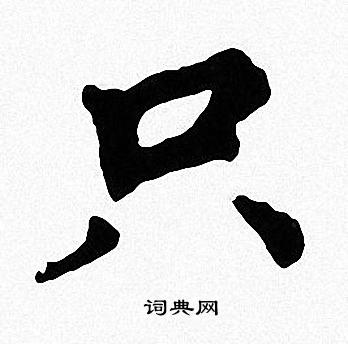 只
词典网